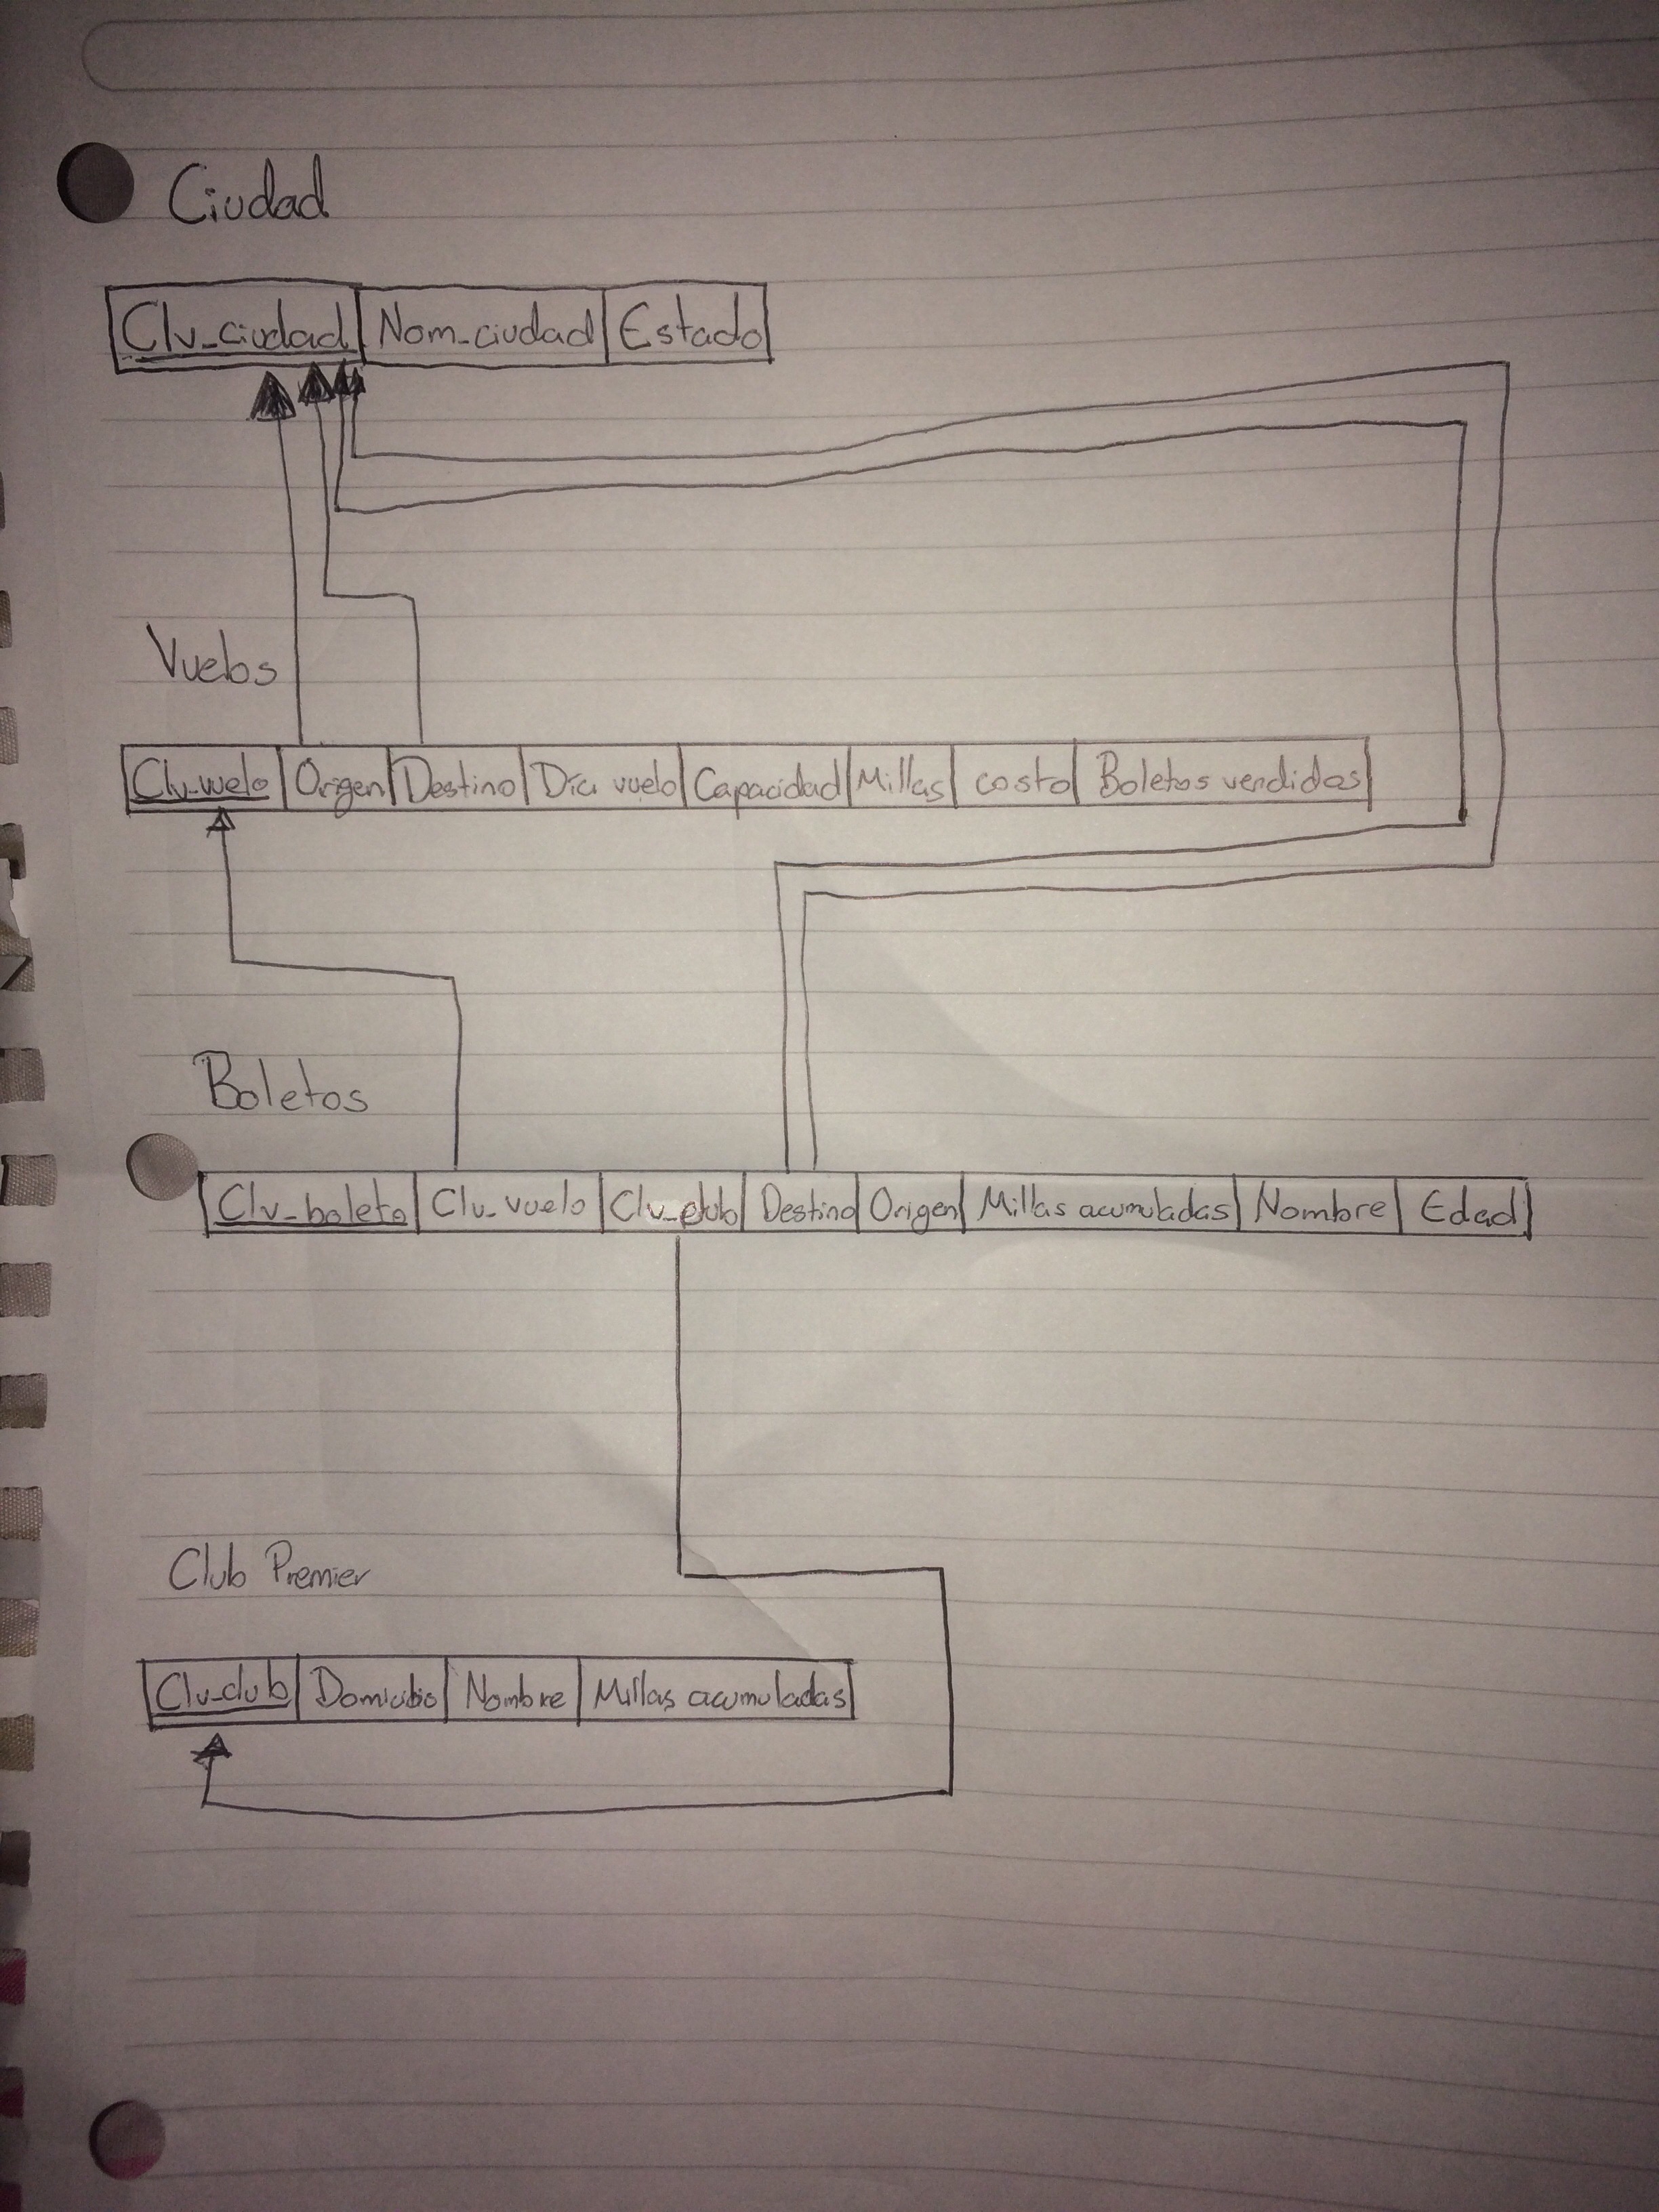 Ciudad
Clv_ciudad Nom_ciudad Estado
Vuelos
Clv_vuelo Origen Destino Día vuelo Capacidad Millas costo Boletos vendidos
Boletos
Clv_boleto Clv_vuelo Clv_club Destino Origen Millas acumuladas Nombre Edad
Club Premier
Clv_club Domicilio Nombre Millas acumuladas